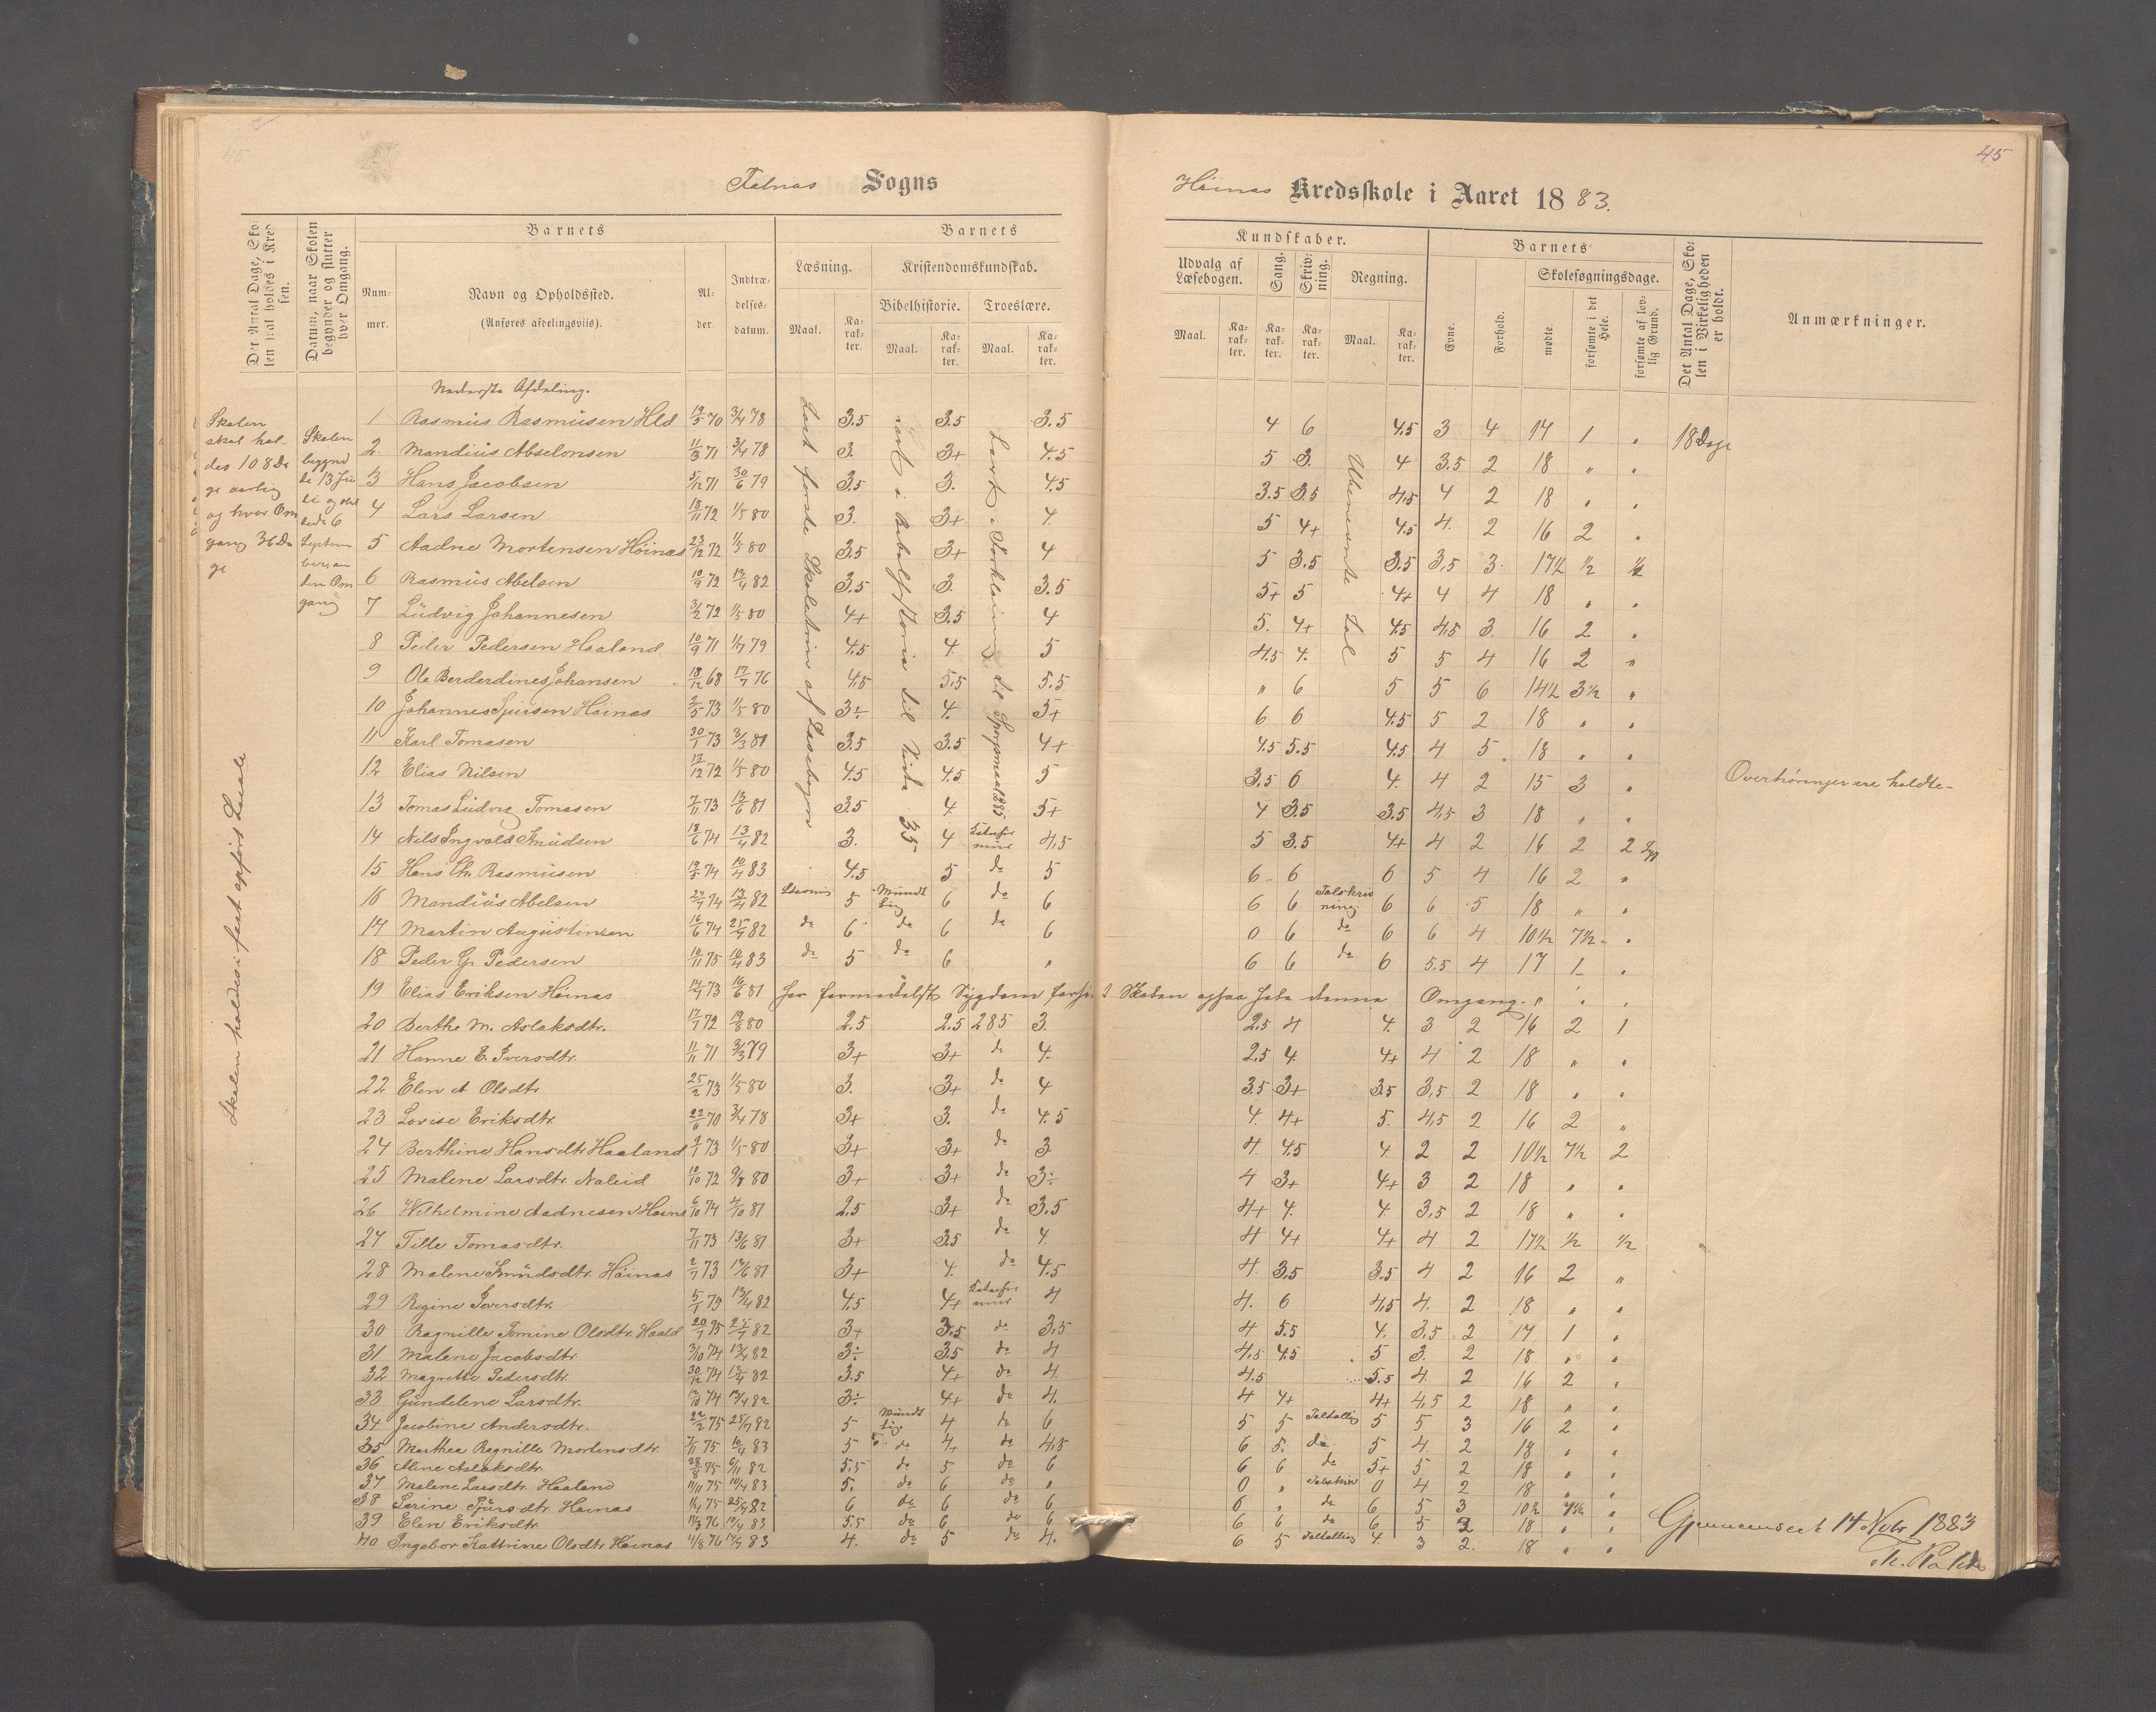 45
Falnæs Sogns
Höinæs Kredsskole i Aaret 1883.
Det Antal Dage, Skolen skal holdes i Kredsen.
Datum, naar Skolen begynder og slutter hver Omgang.
Barnets
Nummer.
Navn og Opholdssted.
(Anføres afdelingsviis).
Alder.
Indtrædelsesdatum.
Barnets
Læsning.
Kristendomskundskab.
Bibelhistorie.
Troeslære.
Maal.
Karakter.
Maal.
Karakter.
Maal.
Karakter.
Kundskaber.
Udvalg af Læsebogen.
Sang.
Skrivning.
Regning.
Maal.
Karakter.
Karakter.
Karakter.
Maal.
Karakter.
Barnets
Evne.
Forhold.
Skolesøgningsdage.
mødte.
forsømte i det Hele.
forsømte af lovlig Grund.
Det Antal Dage, Skolen i Virkeligheden er holdt.
Anmærkninger.
Nederste Afdeling.
Skolen
skal hol-
des 108 Da
ge aarlig
og hver Om
gang 36 Da
ge
Skolen
begynd
te 13 Ju
li og slut
tede 6
Septem
ber an
den Om
gang
Skolen holdes i fast opført Locale
Læst første Skoletrin af Læsebogen
lært i Bibelhistorie til Side 35
Lært i Forklaring til Spørgsmaal 285
Ubenævnte Tal
1 Rasmus Rasmusen Hld 19/5 70 3/4 78 3.5 3.5 3.5 4 6 4.5 3 4 17 1 " 18 Dage
2 Mandius Abselonsen 11/3 71 3/4 78 3. 3+ 4.5 5 3. 4 3.5 2 18 " "
3 Hans Jacobsen 5/12 71 30/6 79 3.5 3. 4.5 3.5 3.5 4.5 4 2 18 " "
4 Lars Larsen 18/11 72 1/5 80 3. 3+ 4. 5 4+ 4.5 4. 2 16 2 "
5 Aadne Mortensen Höinæs 23/12 72 1/5 80 3.5 3+ 4 5 3.5 3.5 3.5 3. 17½ ½ ½
6 Rasmus Abelsen 10/9 72 13/4 82 3.5 3. 3.5 5+ 5 4+ 4 4 18 " "
7 Ludvig Johannesen 3/2 72 1/5 80 4+ 3.5 4 5. 4+ 4.5 4.5 3. 16 2 "
8 Peder Pedersen Haaland 10/9 71 1/7 79 4.5 4. 5 4.5 4. 5 5 4 16 2 "
9 Ole Berderdines Johansen 18/12 68 17/7 76 4.5 5.5 5.5 " 6 5 5 6 14½ 3½ "
10 Johannes Sjursen Höinæs 2/5 73 1/5 80 3÷ 4. 5+ 6 6 4.5 5 2 18 " "
11 Karl Tomasen 30/1 73 3/3 81 3.5 3.5 4+ 4.5 5.5 4.5 4 5 18 " "
12 Elias Nilsen 12/12 72 1/5 80 4.5 4.5 5 3.5 6 4. 4 2 15 3 "
Overhöringer ere holdte-
13 Tomas Ludvig Tomasen 7/11 73 13/6 81 3.5 4. 5+ 4 3.5 3.5 4.5 3 18 " "
14 Nils Ingvald Knudsen 18/6 74 13/4 82 3. 4 4.5 5 3.5 4+ 4 2 16 2 2
15 Hans Chr. Rasmusen 19/5 74 10/4 83 4.5 5 do 5 6 6 6 5 4 16 2 "
16 Mandius Abelsen 27/7 74 13/4 82 Stavning 5 Mundtlig 6 do 6 6 6 Talskrivning 6 6 5 18 " "
17 Martin Augustinsen 16/6 74 25/7 82 do 6 do 6 do 6 0 6 do 6 6 4 10½ 7½ "
18 Peder G. Pedersen 10/11 75 10/4 83 do 5 do 6 " 6 6 do 6 5.5 4 17 1 "
19 Elias Eriksen Höinæs 14/7 73 16/6 81 har formedelst Sygdom Skolen denne Omgang. " " "
20 Berthe M. Aslaksdtr. 17/7 72 19/8 80 2.5 2.5 285 3. 2.5 4 4. 3 2 16 2 1
21 Hanne E. Iversdtr. 11/11 71 3/3 79 3+ 3+ do 4. 2.5 4. 4+ 4 2 18 " "
22 Elen A Olsdtr 25/2 73 1/5 80 3. 3+ do 4 3.5 3+ 3.5 3.5 2 18 " "
23 Lovise Eriksdtr. 22/6 70 3/4 78 3+ 3. do 4.5 4. 4+ 5. 4.5 2 16 2 "
24 Berthine Hansdtr Haaland 9/1 73 1/5 80 3+ 3+ do 3 4. 4.5 4. 2 2 10½ 7½ 2
25 Malene Larsdtr. Naleid 10/10 72 9/8 80 3+ 3+ do 3÷ 4 3+ 4+ 3 2 18 " "
26 Wilhelmine Aadnesen Höinæs 6/10 74 4/10 81 2.5 3+ do 3.5 4+ 4. 4. 3.5 2 18 " "
27 Tille Tomasdtr. 7/11 73 13/6 81 3+ 3.5 do 4. 4 4+ 4+ 4 2 17½ ½ ½
28 Malene Knudsdtr. Höinæs 2/7 73 14/6 81 3+ 4. do 4.5 4. 3.5 3.5 4 2 16 2 "
29 Regine Iversdtr. 5/1 73 13/4 82 4.5 4+ 4 4. 6 4.5 4. 2 18 " "
30 Ragnille Tomine Olsdtr. Haald 20/1 75 25/7 82 3+ 3.5 do 3.5 4 5.5 4. 3.5 2 17 1 "
31 Malene Jacobsdtr. 3/10 74 13/4 82 3÷ 3.5 do 4 4.5 4.5 5 3. 2 18 " "
32 Magrethe Pedersdtr. 30/12 74 13/4 82 3.5 4+ do 4. 4.5 5.5 4. 2 16 2 "
33 Gundelene Larsdtr. 12/10 74 13/4 82 3÷ 4+ do 4. 4 4+ 4+ 4.5 2 18 " "
34 Jacobine Andersdtr. 22/2 75 25/7 82 5 Mundtlig 4 do 6 5 5 Taltællig 5 5 3 16 2 "
35 Marthea Ragnille Mortensdtr. 7/11 75 10/4 83 5 do 4. do 4.5 6 5. do 5 4. 2 18 " "
36 Mine Aslaksdtr. 28/8 75 6/11 82 5.5 do 5 do 6 6 6 do 5+ 5 2 18 " "
37 Malene Larsdtr. Haaland 11/11 75 10/4 83 5. do 6 do " 0 " Talskriv 0 4 2 18 " "
38 Serine Sjursdtr. Höinæs 1/4 75 25/7 82 6 do 6 do 6 6 " do 6 5 3 10½ 7½ "
39 Elen Eriksdtr. 11/3 76 10/4 83 5.5 do 6 do 6 6 6 do 6 5 2 18 " "
40 Ingebor Kattrine Olsdtr Höinæs 4/8 76 14/7 83 4. do 5 do 4. 6 5 Taltællig 4. 3 2. 18 " "
Gjennemseet 14 Nvbr 1883